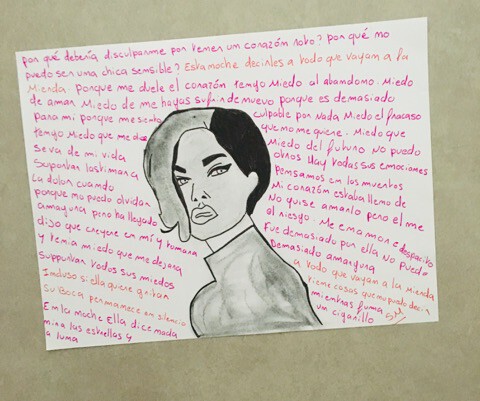 por qué debería disculparme por temer un corazón roto? por qué no
puedo ser una chica sensible? Esta noche decirles a todo que vayan a la
Mienda. porque me duele el corazón tengo Miedo al abandono. Miedo
de amar Miedo de me hagas sufrir de nuevo porque es demasiado
para mi porque me siento culpable por nada Miedo el fracaso
tengo Miedo que me que no me quiere. Miedo que
se va de mi vida Miedo del futuro No puedo
Soportar otros Hay todas sus emociones
La dolor cuando Pensamos en los muertos
porque no puedo olvidar Mi corazón estaba lleno de
amargura pero ha llegado No quise amarlo pero el me
dijo que creyera en mí y tomara el riesgo. Me enamoré despacito
y tenia miedo que me dejara Fue demasiado por ella no puedo
Supportar todos sus miedos Demasiado amargura
Incluso si ella quiere gritar a todo que vayan a la mienda
Su Boca permanece en silencio tiene cosas que no puedo decir
En la noche Ella dice nada mientras fuma
mira las estrellas y un cigarillo
a luna